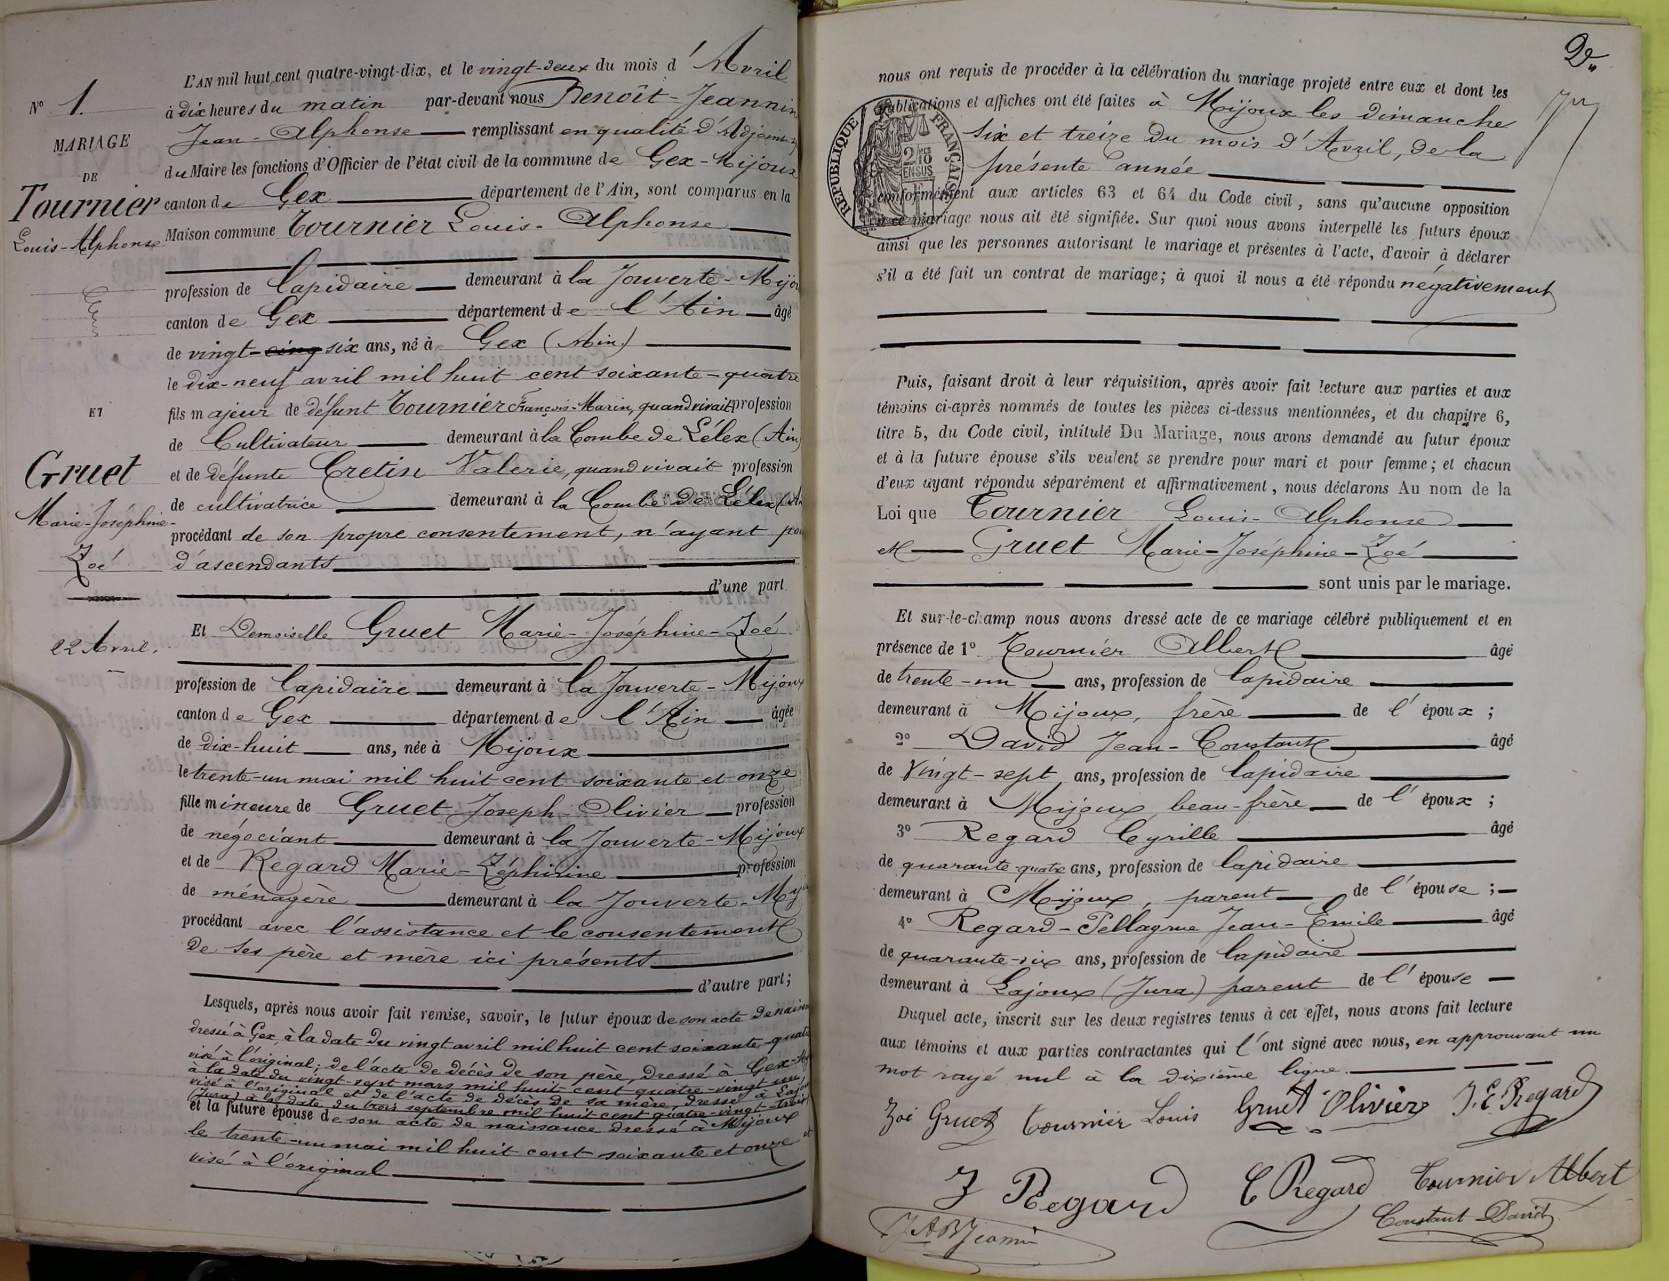 L'AN mil huit cent quatre-vingt-dix, et le vingt-deux du mois d'Avril
N° 1.
à dix heures du matin par-devant nous Benoît-Jeannin
MARIAGE
Jean-Alphonse remplissant en qualité d'Adjoint
DE
du Maire les fonctions d'Officier de l'état civil de la commune de Gex-Mijoux
Tournier
canton de Gex département de l'Ain, sont comparus en la
Louis-Alphonse
Maison commune Tournier Louis-Alphonse
profession de lapidaire demeurant à la Jouverte-Mijoux
canton de Gex département de l'Ain âgé
de vingt-cinq six ans, né à Gex (Ain)
le dix-neuf avril mil huit cent soixante-quatre
ET
fils majeur de défunt Tournier François-Marin, quand vivait profession
de Cultivateur demeurant à la Combe de Lélex (Ain)
Gruet
et de défunte Cretin Valerie, quand vivait profession
de cultivatrice demeurant à la Combe de Lélex
Marie-Joséphine-
Zoé
procédant de son propre consentement, n'ayant
d'ascendants
d'une part
22 Avril.
Et Demoiselle Gruet Marie-Joséphine-Zoé
profession de lapidaire demeurant à la Jouverte-Mijoux
canton de Gex département de l'Ain âgée
de dix-huit ans, née à Mijoux
le trente-un mai mil huit cent soixante et onze
fille mineure de Gruet Joseph-Olivier profession
de négociant demeurant à la Jouverte-Mijoux
et de Regard Marie-Zéphirine profession
de ménagère demeurant à la Jouverte-Mij
procédant avec l'assistance et le consentement
de ses père et mère ici présents
d'autre part;
Lesquels, après nous avoir fait remise, savoir, le futur époux de son acte de naissance
dressé à Gex, à la date du vingt avril mil huit cent soixante quatre
visé à l'original; de l'acte de décès de son père, dressé à Gex-
à la date du vingt-sept mars mil huit-cent-quatre-vingt un
visé à l'original et de l'acte de décès de sa mère, dressé à Lajoux
(Jura) à la date du trois septembre mil huit cent quatre-vingt-trois
et la future épouse de son acte de naissance dressé à Mijoux
le trente-un mai mil huit cent soixante et onze et
visé à l'original
2e
nous ont requis de procéder à la célébration du mariage projeté entre eux et dont les
publications et affiches ont été faites à Mijoux les dimanche
six et treize du mois d'Avril, de la
présente année
RÉPUBLIQUE FRANÇAISE
conformément aux articles 63 et 64 du Code civil, sans qu'aucune opposition
à ce mariage nous ait été signifiée. Sur quoi nous avons interpellé les futurs époux
ainsi que les personnes autorisant le mariage et présentes à l'acte, d'avoir à déclarer
s'il a été fait un contrat de mariage; à quoi il nous a été répondu négativement
Puis, faisant droit à leur réquisition, après avoir fait lecture aux parties et aux
témoins ci-après nommés de toutes les pièces ci-dessus mentionnées, et du chapitre 6,
titre 5, du Code civil, intitulé Du Mariage, nous avons demandé au futur époux
et à la future épouse s'ils veulent se prendre pour mari et pour femme; et chacun
d'eux ayant répondu séparément et affirmativement, nous déclarons Au nom de la
Loi que Tournier Louis-Alphonse
et Gruet Marie-Joséphine-Zoé
sont unis par le mariage.
Et sur-le-champ nous avons dressé acte de ce mariage célébré publiquement et en
présence de 1° Tournier Albert âgé
de trente-un ans, profession de lapidaire
demeurant à Mijoux, frère de l'époux;
2° David Jean-Constant âgé
de vingt-sept ans, profession de lapidaire
demeurant à Mijoux beau-frère de l'époux;
3° Regard Cyrille âgé
de quarante-quatre ans, profession de lapidaire
demeurant à Mijoux, parent de l'épouse;
4° Regard-Pellagrue Jean-Emile âgé
de quarante-six ans, profession de lapidaire
demeurant à Lajoux (Jura) parent de l'épouse
Duquel acte, inscrit sur les deux registres tenus à cet effet, nous avons fait lecture
aux témoins et aux parties contractantes qui l'ont signé avec nous, en approuvant un
mot rayé nul à la dixième ligne.
Zoé Gruet Tournier Louis Gruet Olivier J. E. Regard
Z Regard C Regard Tournier Albert
Constant David